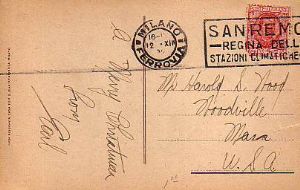 MILANO
12. XII
FERROVIA
SANREMO
REGINA DELL
STAZIONI CLIMATICHE
A
Merry Christmas
from
Earl
Mr Harold S. Wood
Woodville
Mass
U.S.A